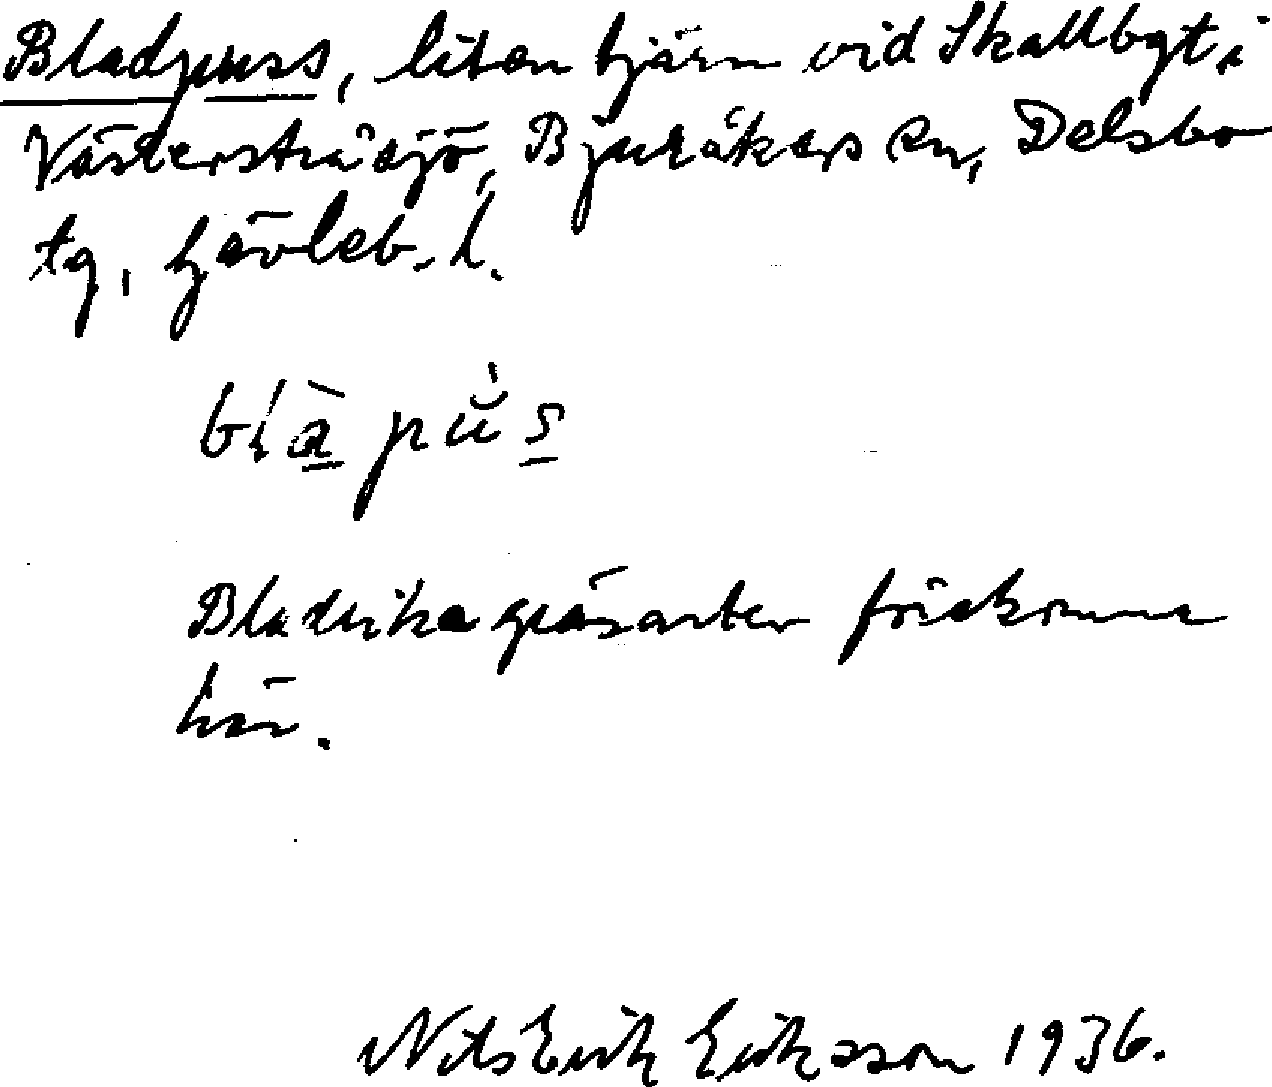 Bladpuss, liten tjärn vid Skallbgt i
Västerstråsjö, Bjuråkers sn, Delsbo
tg, Gävleb. l.
blà pŭs
Bladrika gräsarter förekomma
här.
Nils Erik Eriksson 1936.